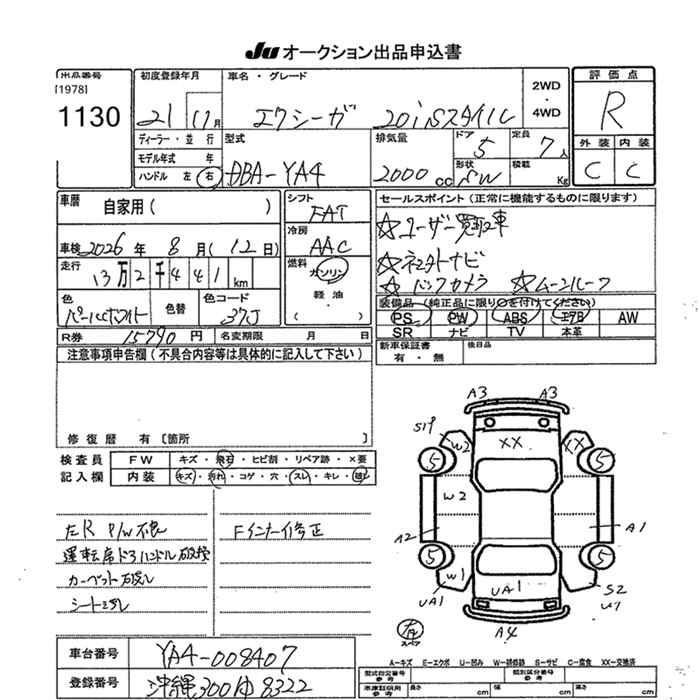 JU オークション出品申込書
出品番号
[1978]
1130
初度登録年月
21 11月
車名・グレード
エクシーガ 20iSスタイル
2WD
・
4WD
評価点
R
外装 内装
C C
ディーラー・並行
モデル年式 年
ハンドル 左 右
型式
DBA-YA4
排気量
2000 cc
ドア
5
定員
7人
形状
SW
積載
Kg
車暦
自家用( )
車検 2026年 8月(12日)
走行
13万2千441 km
色
パールホワイト
色替
色コード
37J
シフト
FAT
冷房
AAC
燃料
ガソリン
軽油
( )
セールスポイント(正常に機能するものに限ります)
☆ユーザー買取車
☆ネクストナビ
☆バックカメラ ☆ムーンルーフ
装備品(純正品に限り○を付けてください)
PS PW ABS エアB AW
SR ナビ TV 本革
R券 15790円 名変期限 月 日
新車保証書
有・無
後日品
注意事項申告欄(不具合内容等は具体的に記入して下さい)
修復暦 有〔箇所 〕
検査員
記入欄
FW キズ・飛石・ヒビ割・リペア跡・×要
内装 キズ・汚れ・コゲ・穴・スレ・キレ・破し
左R P/W不良
運転席ドアハンドル破損
カーペット破し
シートスレ
Fインナー修正
A3 A3
S19 W2 XX XX
5 5
W2
A2 A1
5 5
W1 UA1
UA1 S2
U1
A4
スペア
A-キズ E-エクボ U-凹み W-補修跡 S-サビ C-腐食 XX-交換済
車台番号 YA4-008407
登録番号 沖縄300ゆ8322
型式指定番号
参考
類別区分番号
参考
車庫証明用
参考
長さ cm
幅 cm
高さ cm